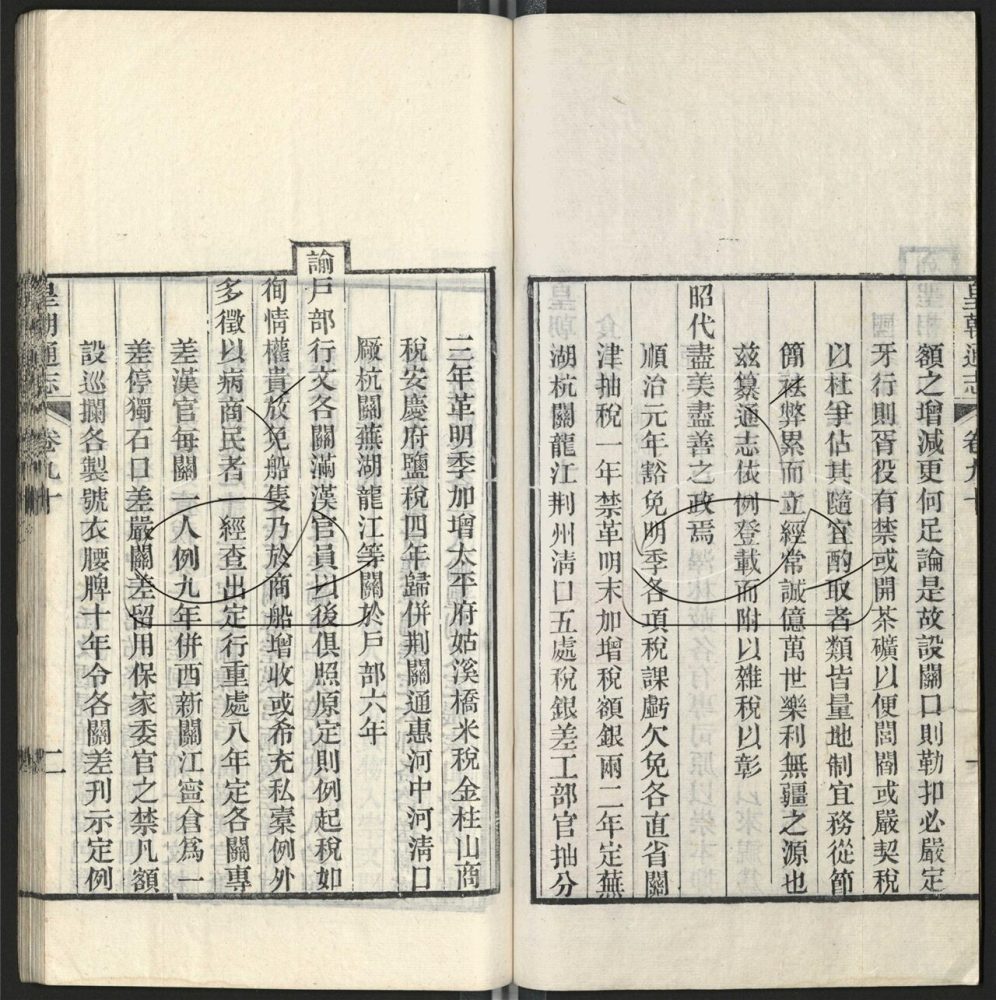 皇朝通志 卷九十
額之增減更何足論是故設關口則勒扣必嚴定
牙行則胥役有禁或開茶礦以便閭閻或嚴契稅
以杜爭佔其隨宜酌取者類皆量地制宜務從節
簡袪弊累而立經常誠億萬世樂利無疆之源也
兹纂通志依例登載而附以雜稅以彰
昭代盡美盡善之政焉
順治元年豁免明季各項稅課虧欠免各直省關
津抽稅一年禁革明末加增稅額銀兩二年定蕪
湖杭關龍江荆州清口五處稅銀差工部官抽分
三年革明季加增太平府姑溪橋米稅金柱山商
稅安慶府鹽稅四年歸併荆關通惠河中河清口
厰杭關蕪湖龍江等關於戶部六年
諭戶部行文各關滿漢官員以後俱照原定則例起稅如
徇情權貴放免船隻乃於商船增收或希充私橐例外
多徵以病商民者一經查出定行重處八年定各關專
差漢官每關一人例九年併西新關江寧倉爲一
差停獨石口差嚴關差留用保家委官之禁凡額
設巡攔各製號衣腰牌十年令各關差刊示定例
皇朝通志 卷九十 二